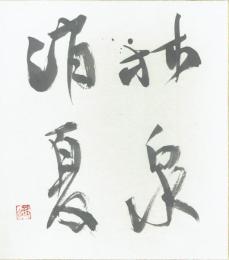 林泉
消夏